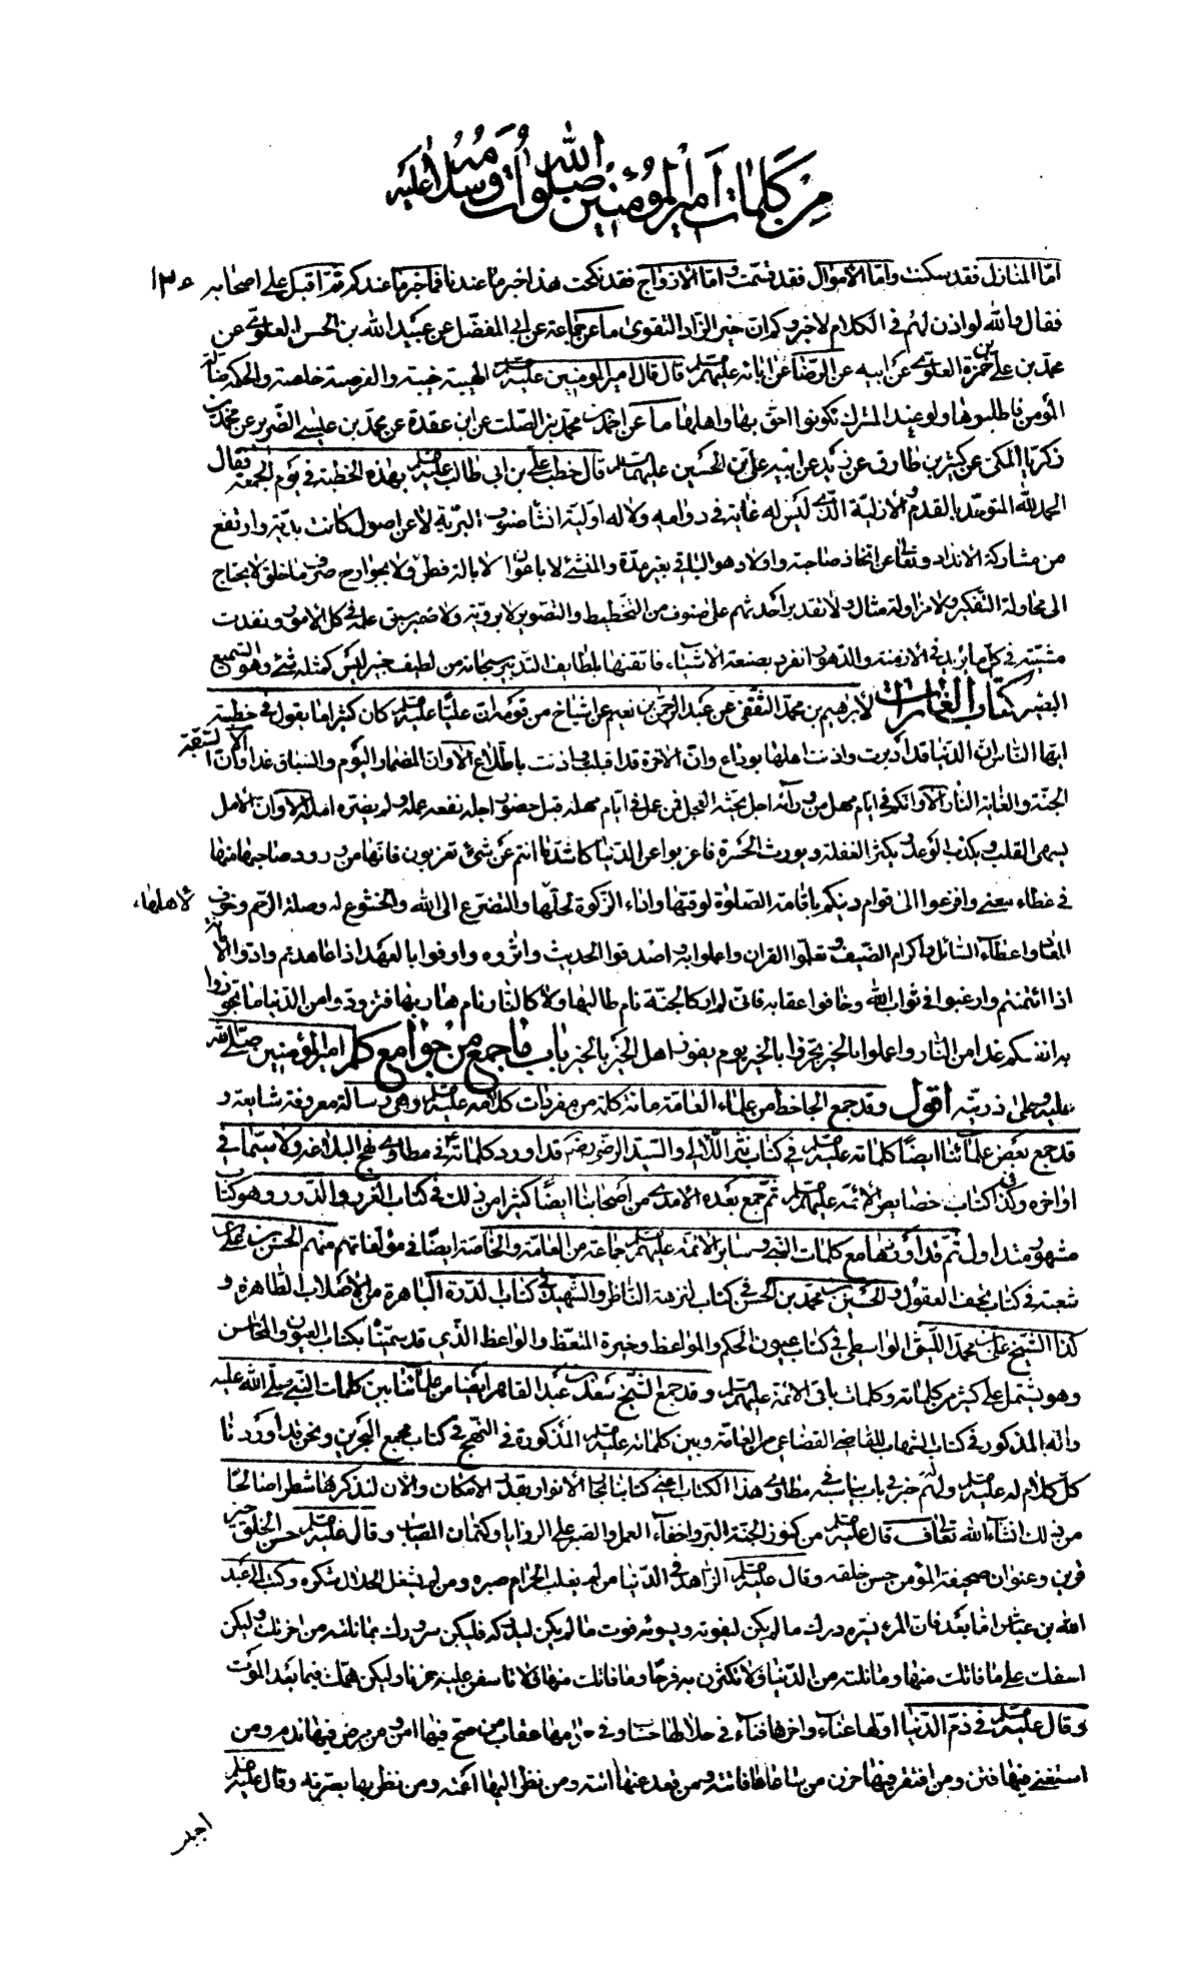 من كلمات أمير المؤمنين صلوات الله وسلامه عليه
امّا المنازل فقد سكنت وامّا الاموال فقد قسّمت وامّا الازواج فقد نكحت هذا خبر ما عندنا فما خبر ما عندكم ثمّ اقبل على اصحابه
١٣٠
فقال والله لو اذن لهم في الكلام لاخبروكم ان خير الزاد التقوى ما عن جماعة عن ابي المفضّل عن عبيد الله بن الحسن العلوي عن
محمّد بن علي بن حمزة العلوي عن ابيه عن الرضا عن ابائه عليهم قال قال امير المومنين عليه الهيبة خيبة والفرصة خلسة والحكمة ضالة
المؤمن فاطلبوها ولو عند المشرك تكونوا احق بها واهلها ما عن احمد بن محمّد بن الصلت عن ابن عقدة عن محمّد بن عيسى الضرير عن محمّد بن
زكريا المكي عن كثير بن طارق عن زيد عن ابيه علي بن الحسين عليهما قال خطب علي بن ابي طالب عليه بهذه الخطبة في يوم الجمعة فقال
الحمد لله المتوحّد بالقدم والازلية الّذي ليس له غاية في دوامه ولا له اولية انشأ صنوف البرية لا عن اصول كانت بدية وارتفع
من مشاركة الانداد وتعالى عن اتخاذ صاحبة واولاد هو الباقي بغير مدّة والمنشئ لا باعوان لا بالة فطن ولا بجوارح صرف ما خلق لا يحتاج
الى محاولة التفكير ولا مزاولة مثال ولا تقدير احدثهم على صنوف من التخطيط والتصوير لا بروية ولا ضمير سبق علمه في كل الامور ونفذت
مشيته في كل ما يريد في الازمنة والدهور انفرد بصنعة الاشياء فاتقنها بلطايف التدبير سبحانه من لطيف خبير ليس كمثله شئ وهو السميع
البصير كتاب الغارات لابرهيم بن محمّد الثقفي عن عبد الرحمن بن نعيم عن اشياخ من قومه ان عليّا عليه كان كثيرا ما يقول في خطبته
ايها الناس ان الدنيا قد ادبرت واذنت اهلها بوداع وانّ الاخرة قد اقبلت واذنت باطّلاع الا وان المضمار اليوم والسباق غدا الا وان السبقة
الجنّة والغاية النار الا وانكم في ايام مهل من ورائه اجل يحثّه العجل فمن عمل في ايّام مهله قبل حضور اجله نفعه عمله ولم يضرّه امله الا وان الامل
يسهى القلب ويكذب الوعد ويكثر الغفلة ويورث الحسرة فاعزبوا عن الدنيا كاشدّ ما انتم عن شئ تعزبون فانها من ورود صاحبها منها
في غطاء معنى وافزعوا الى قوام دينكم باقامة الصلوة لوقتها واداء الزكوة لحلّها والتضرّع الى الله والخشوع له وصلة الرحم وخوف
لاهلها،
المعاد واعطاء السائل واكرام الضيف وتعلّموا القران واعملوا به واصدقوا الحديث واثروه واوفوا بالعهد اذا عاهدتم وادّوا الامانة
اذا ائتمنتم وارغبوا في ثواب الله وخافوا عقابه فانّي لم ار كالجنّة نام طالبها ولا كالنار نام هاربها فتزودوا من الدنيا ما تحوزوا
به انفسكم غدا من النار واعملوا بالخير تجزوا بالخير يوم يفوز اهل الخير بالخير باب ما جمع من جوامع كلم امير المؤمنين صلى الله
عليه وعلى ذريّته اقول وقد جمع الجاحظ من علماء العامة مائة كلمة من مفردات كلامه عليه وهي رسالة معروفة شايعة و
قد جمع بعض علمائنا ايضا كلماته عليه في كتاب نثر اللآلي والسيد الرضي قد اورد كلماته في مطاوي نهج البلاغة ولا سيّما في
اواخره وكذا في كتاب خصايص الائمّة عليهم ثمّ جمع بعده الامدي من اصحابنا ايضًا كثيرا من ذلك في كتاب الغرر والدرر وهو كتاب
مشهور متداول ثمّ قد اوردها مع كلمات النبي وساير الائمة عليهم جماعة من العامة والخاصة ايضًا في مؤلفاتهم منهم الحسن بن علي بن
شعبة في كتاب تحف العقول والحسين بن محمّد بن الحسن في كتاب نزهة الناظر والشهيد في كتاب الدّرة الباهرة من الاصداف الطاهرة و
كذا الشيخ علي بن محمّد الليثي الواسطي في كتاب عيون الحكم والمواعظ وذخيرة المتعظ والواعظ الّذي قد سمّيناه بكتاب العيون والمحاسن
وهو يشتمل على كثير من كلماته وكلمات باقي الائمّة عليهم وقد جمع الشيخ سعد بن عبد القاهر ايضا من علمائنا بين كلمات النبي صلّى الله عليه
واله المذكور في كتاب الشهاب للقاضي القضاعي من العامّة وبين كلماته عليه المذكورة في النهج في كتاب مجمع البحرين ونحن قد اوردنا
كلّ كلام له عليه ولهم خبر في باب يناسبه في مطاوي هذا الكتاب اعني كتابنا بحار الانوار بقدر الامكان والان لنذكر هنا شطرا صالحًا
من ذلك انشاء الله تعالى ف قال عليه من كنوز الجنّة البرّ واخفاء العمل والصبر على الرزايا وكتمان المصائب وقال عليه حسن الخلق خير
قرين وعنوان صحيفة المؤمن حسن خلقه وقال عليه الزاهد في الدّنيا من لم يغلب الحرام صبره ومن لم يشغل الحلال شكره وكتب الى عبد
الله بن عباس امّا بعد فان المرء يسره درك ما لم يكن ليفوته ويسوئه فوت ما لم يكن ليدركه فليكن سرورك بما نلته من اخرتك وليكن
اسفك على ما فاتك منها وما نلته من الدّنيا فلا تكثرن به فرحًا وما فاتك منها فلا تاسفن عليه حزنا وليكن همّك فيما بعد الموت
وقال عليه في ذمّ الدّنيا اوّلها عناء واخرها فناء في حلالها حساب وفي حرامها عقاب من صحّ فيها امن ومن مرض فيها ندم ومن
استغنى فيها فتن ومن افتقر فيها حزن من ساعاها فاتته ومن قعد عنها اتته ومن نظر اليها اعمته ومن نظر بها بصّرته وقال عليه
احبب